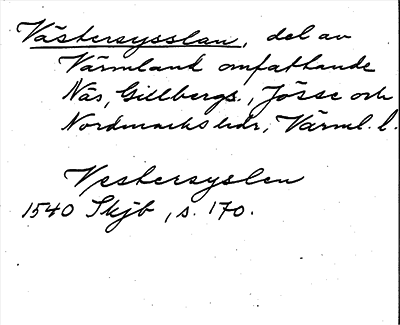 Västersysslan, del av
Värmland omfattande
Näs, Gillbergs, Jösse och
Nordmarks hdr, Värml. l.
Vestersyslen
1540 Skjb, s. 170.